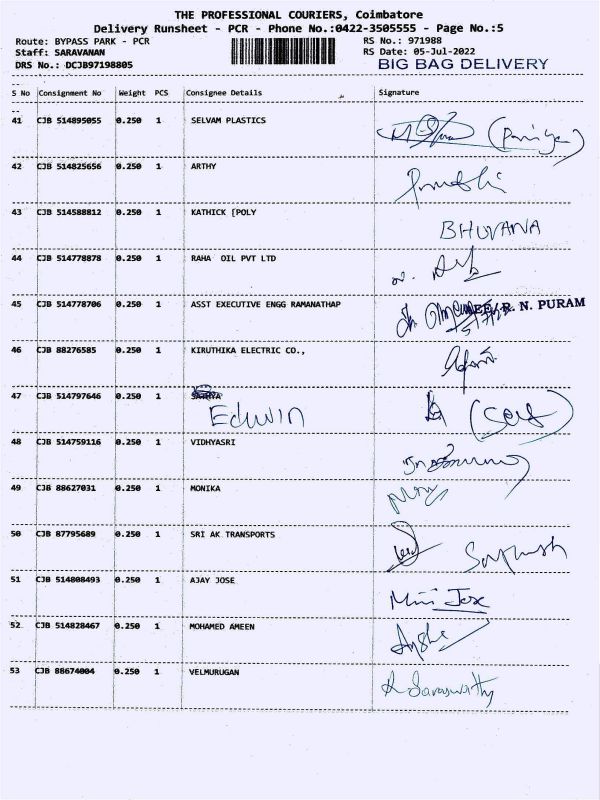 THE PROFESSIONAL COURIERS, Coimbatore
Delivery Runsheet - PCR - Phone No.:0422-3505555 - Page No.:5
Route: BYPASS PARK - PCR RS No.: 971988
Staff: SARAVANAN RS Date: 05-Jul-2022
DRS No.: DCJB97198805 BIG BAG DELIVERY
S No Consignment No Weight PCS Consignee Details Signature
41 CJB 514895055 0.250 1 SELVAM PLASTICS
42 CJB 514825656 0.250 1 ARTHY
43 CJB 514588812 0.250 1 KATHICK [POLY BHUVANA
44 CJB 514778878 0.250 1 RAHA OIL PVT LTD
45 CJB 514778706 0.250 1 ASST EXECUTIVE ENGG RAMANATHAP R. N. PURAM
46 CJB 88276585 0.250 1 KIRUTHIKA ELECTRIC CO.,
47 CJB 514797646 0.250 1 Edwin (Self)
48 CJB 514759116 0.250 1 VIDHYASRI
49 CJB 88627031 0.250 1 MONIKA
50 CJB 87795689 0.250 1 SRI AK TRANSPORTS
51 CJB 514808493 0.250 1 AJAY JOSE Mini Jose
52 CJB 514828467 0.250 1 MOHAMED AMEEN
53 CJB 88674004 0.250 1 VELMURUGAN R Saraswathy